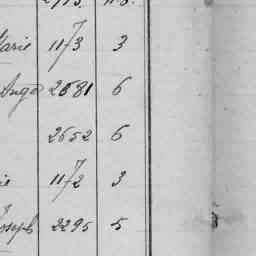 Marie 1173 3
Ange 2681 6
2652 6
1172 3
Joseph 2295 5